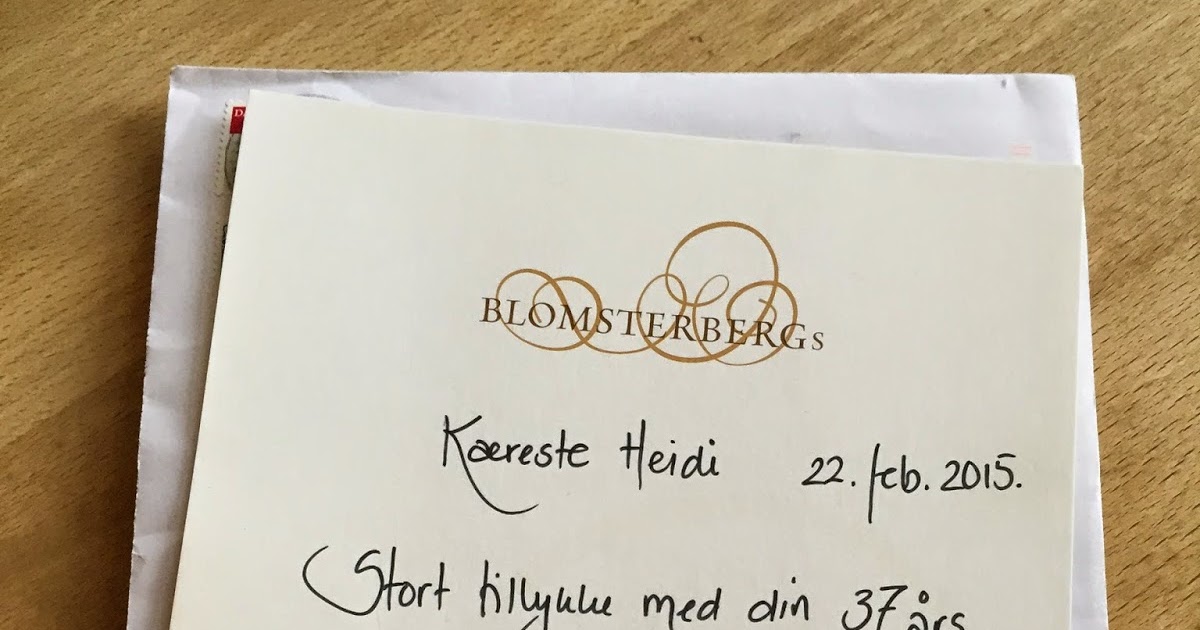 BLOMSTERBERGS
Kæreste Heidi 22. feb. 2015.
Stort tillykke med din 37 års